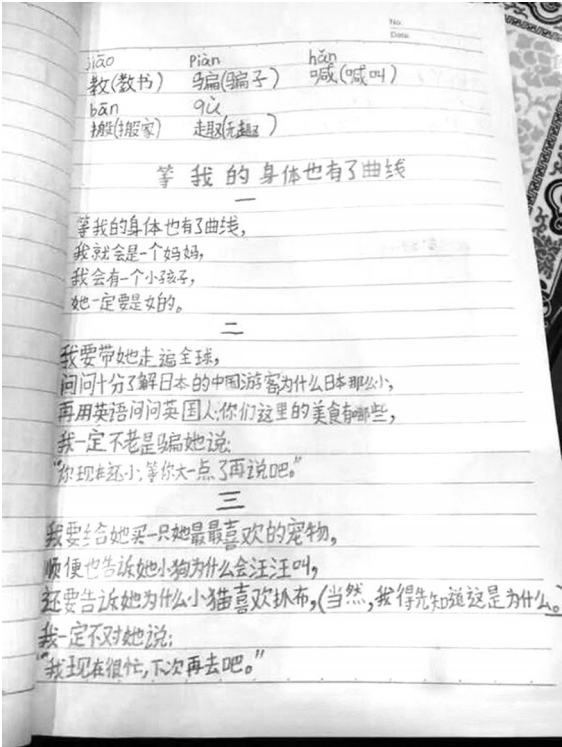 No.
Date.
jiāo piàn hǎn
教(教书) 骗(骗子) 喊(喊叫)
bān qù
搬(搬家) 趣(无趣)
等我的身体也有了曲线
一
等我的身体也有了曲线,
我就会是一个妈妈,
我会有一个小孩子,
她一定要是女的。
二
我要带她走遍全球,
问问十分了解日本的中国游客为什么日本那么小,
再用英语问问英国人:你们这里的美食有哪些,
我一定不老是骗她说:
“你现在还小;等你大一点了再说吧。”
三
我要给她买一只她最最喜欢的宠物,
顺便也告诉她小狗为什么会汪汪叫,
还要告诉她为什么小猫喜欢抓布,(当然,我得先知道这是为什么。
我一定不对她说:
“我现在很忙,下次再去吧。”